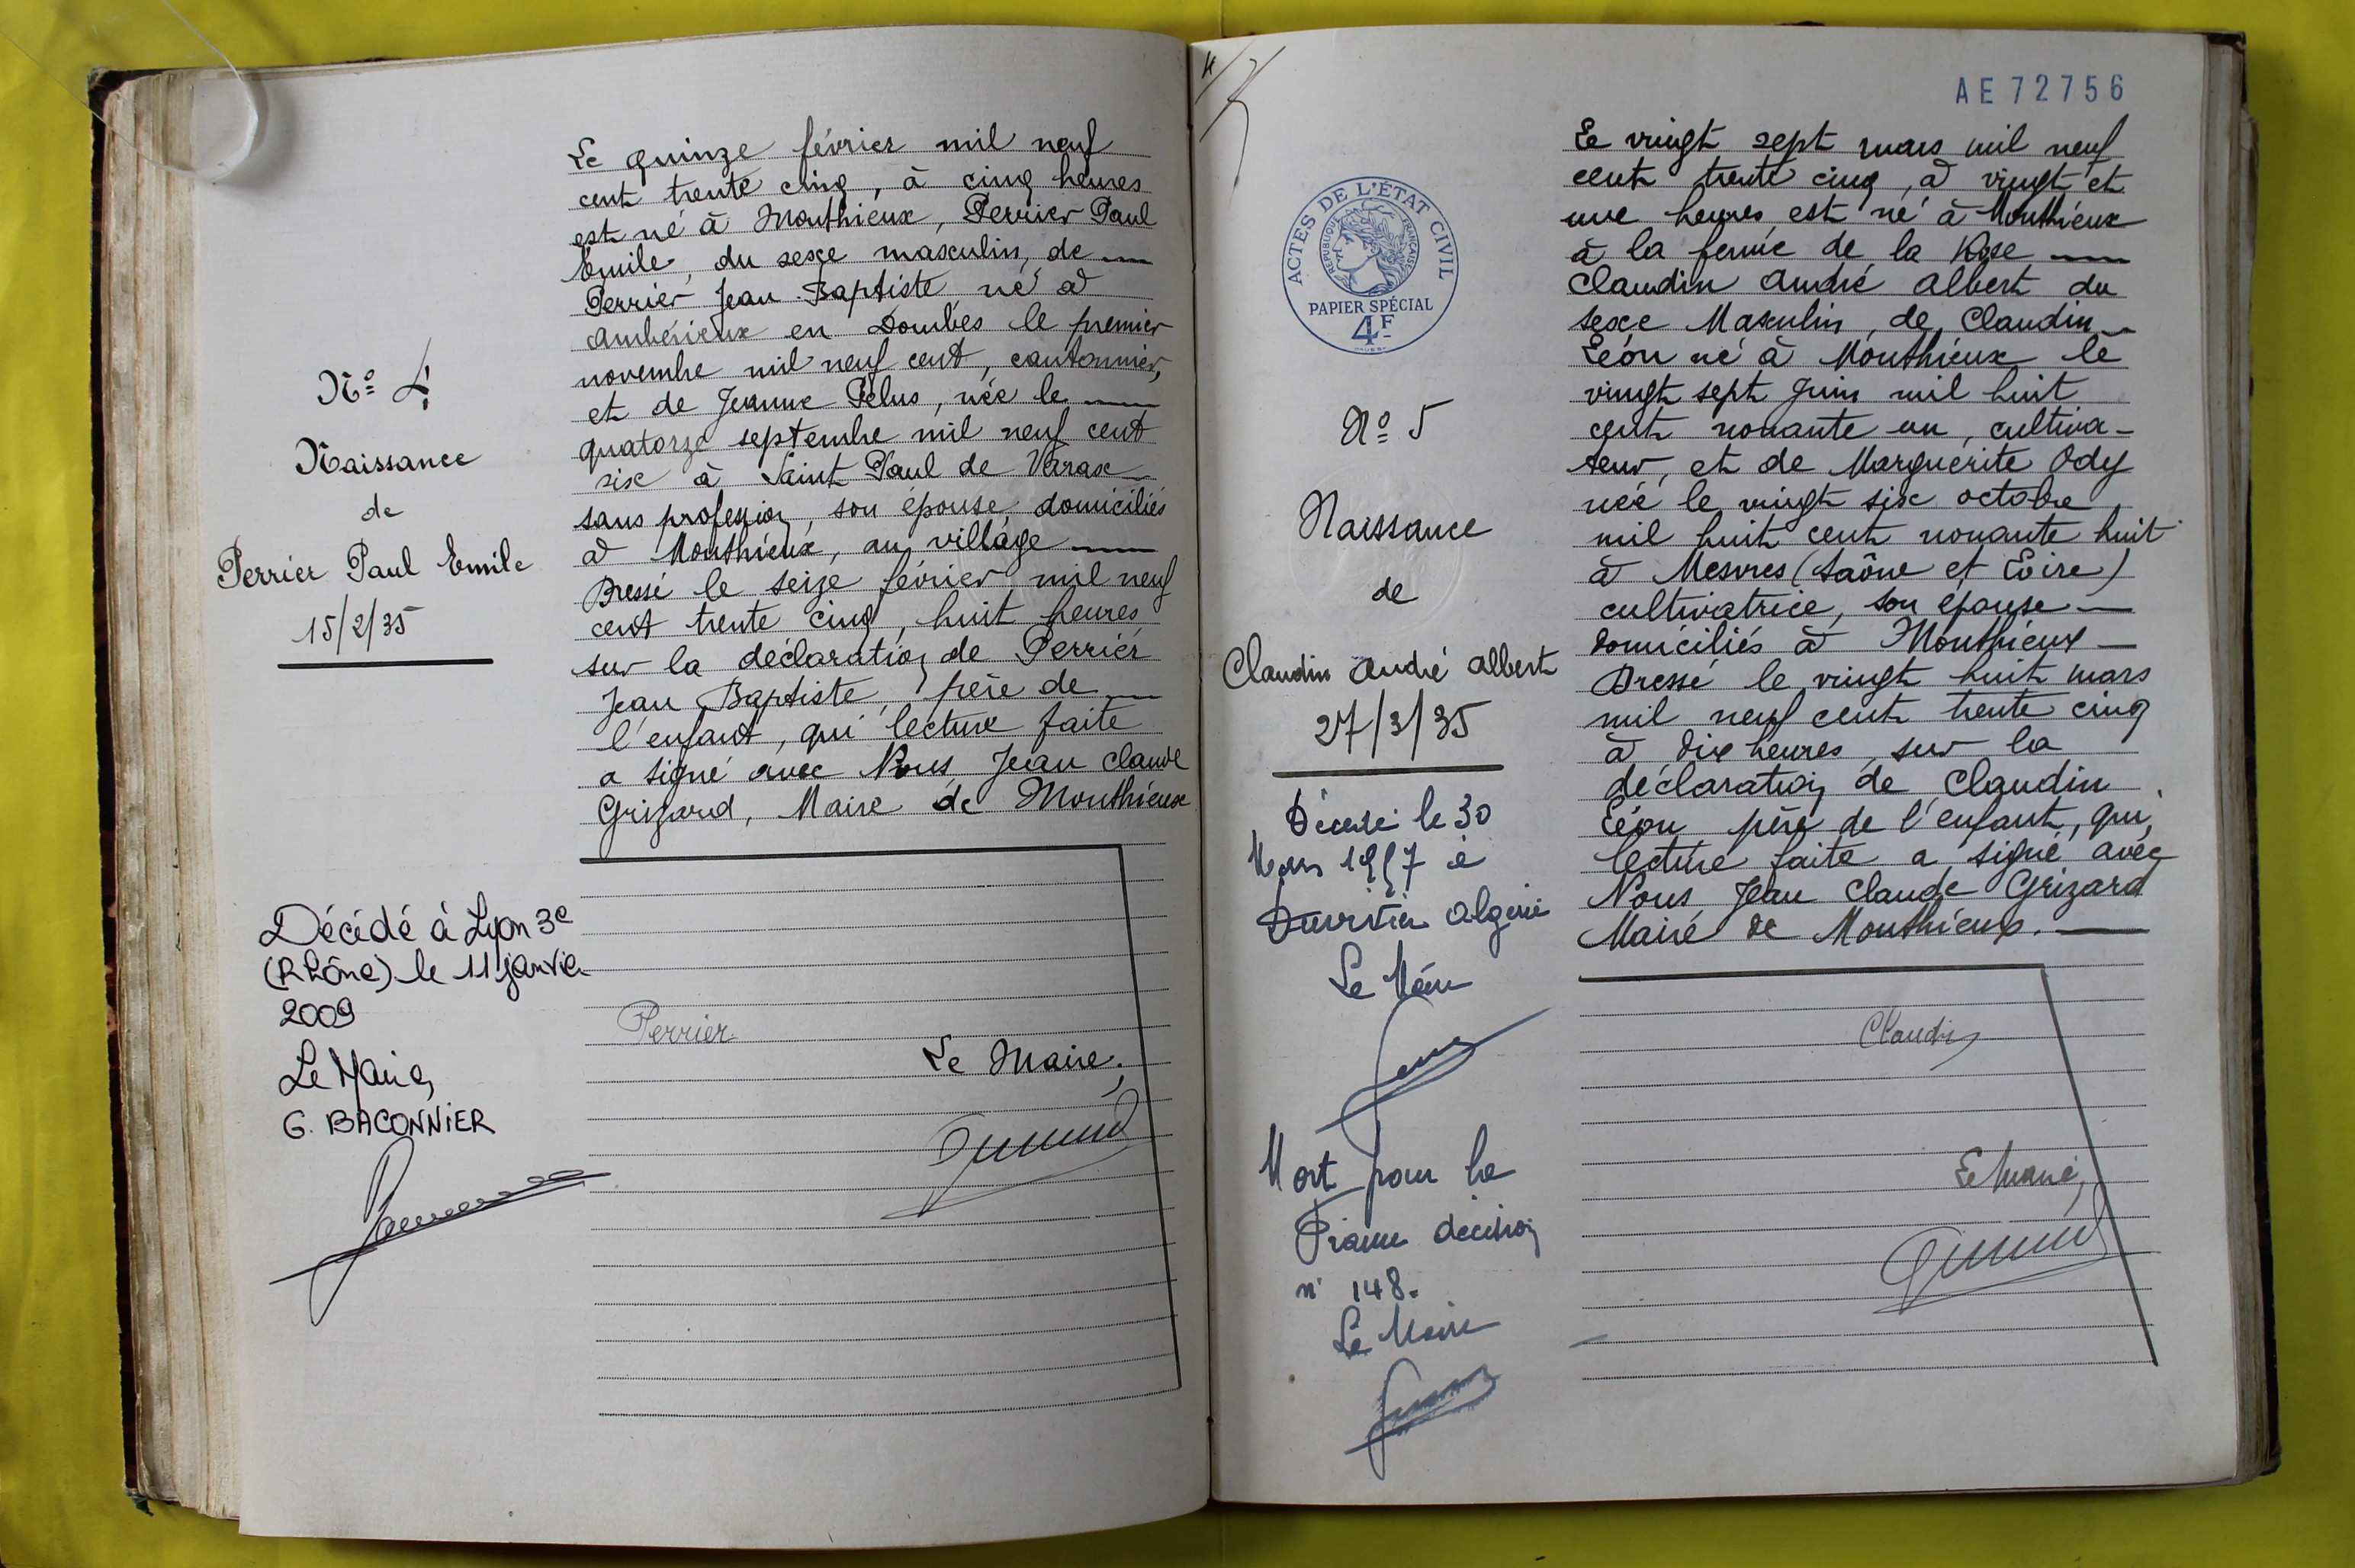 N° 4
Naissance
de
Perrier Paul Emile
15/2/35
Décédé à Lyon 3e
(Rhône) le 11 janvier
2009
Le Maire,
G. BACONNIER
Le quinze février mil neuf
cent trente cinq, à cinq heures
est né à Monthieux, Perrier Paul
Emile, du sexe masculin, de
Perrier Jean Baptiste né à
Ambérieux en Dombes le premier
novembre mil neuf cent, cantonnier,
et de Jeanne Pélus, née le
quatorze septembre mil neuf cent
six à Saint Paul de Varax
sans profession, son épouse, domiciliés
à Monthieux, au village
Dressé le seize février mil neuf
cent trente cinq, huit heures
sur la déclaration de Perrier
Jean Baptiste, père de
l'enfant, qui lecture faite
a signé avec Nous Jean Claude
Grizard, Maire de Monthieux
Perrier
Le Maire,
AE 72756
ACTES DE L'ÉTAT CIVIL
REPUBLIQUE FRANÇAISE
PAPIER SPÉCIAL
4F
N° 5
Naissance
de
Claudin André Albert
27/3/35
Décédé le 30
Mars 1957 à
Algérie
Le Maire
Mort pour la
France décision
n° 148.
Le Maire
Le vingt sept mars mil neuf
cent trente cinq, à vingt et
une heures est né à Monthieux
à la ferme de la Rose
Claudin André Albert du
sexe Masculin, de, Claudin
Léon né à Monthieux le
vingt sept Juin mil huit
cent nonante un, cultiva-
teur, et de Marguerite Ody
née le vingt six octobre
mil huit cent nonante huit
à Mesvres (Saône et Loire)
cultivatrice, son épouse
domiciliés à Monthieux
Dressé le vingt huit mars
mil neuf cent trente cinq
à dix heures, sur la
déclaration de Claudin
Léon père de l'enfant, qui,
lecture faite a signé avec
Nous Jean Claude Grizard
Maire de Monthieux.
Claudin
Le Maire,